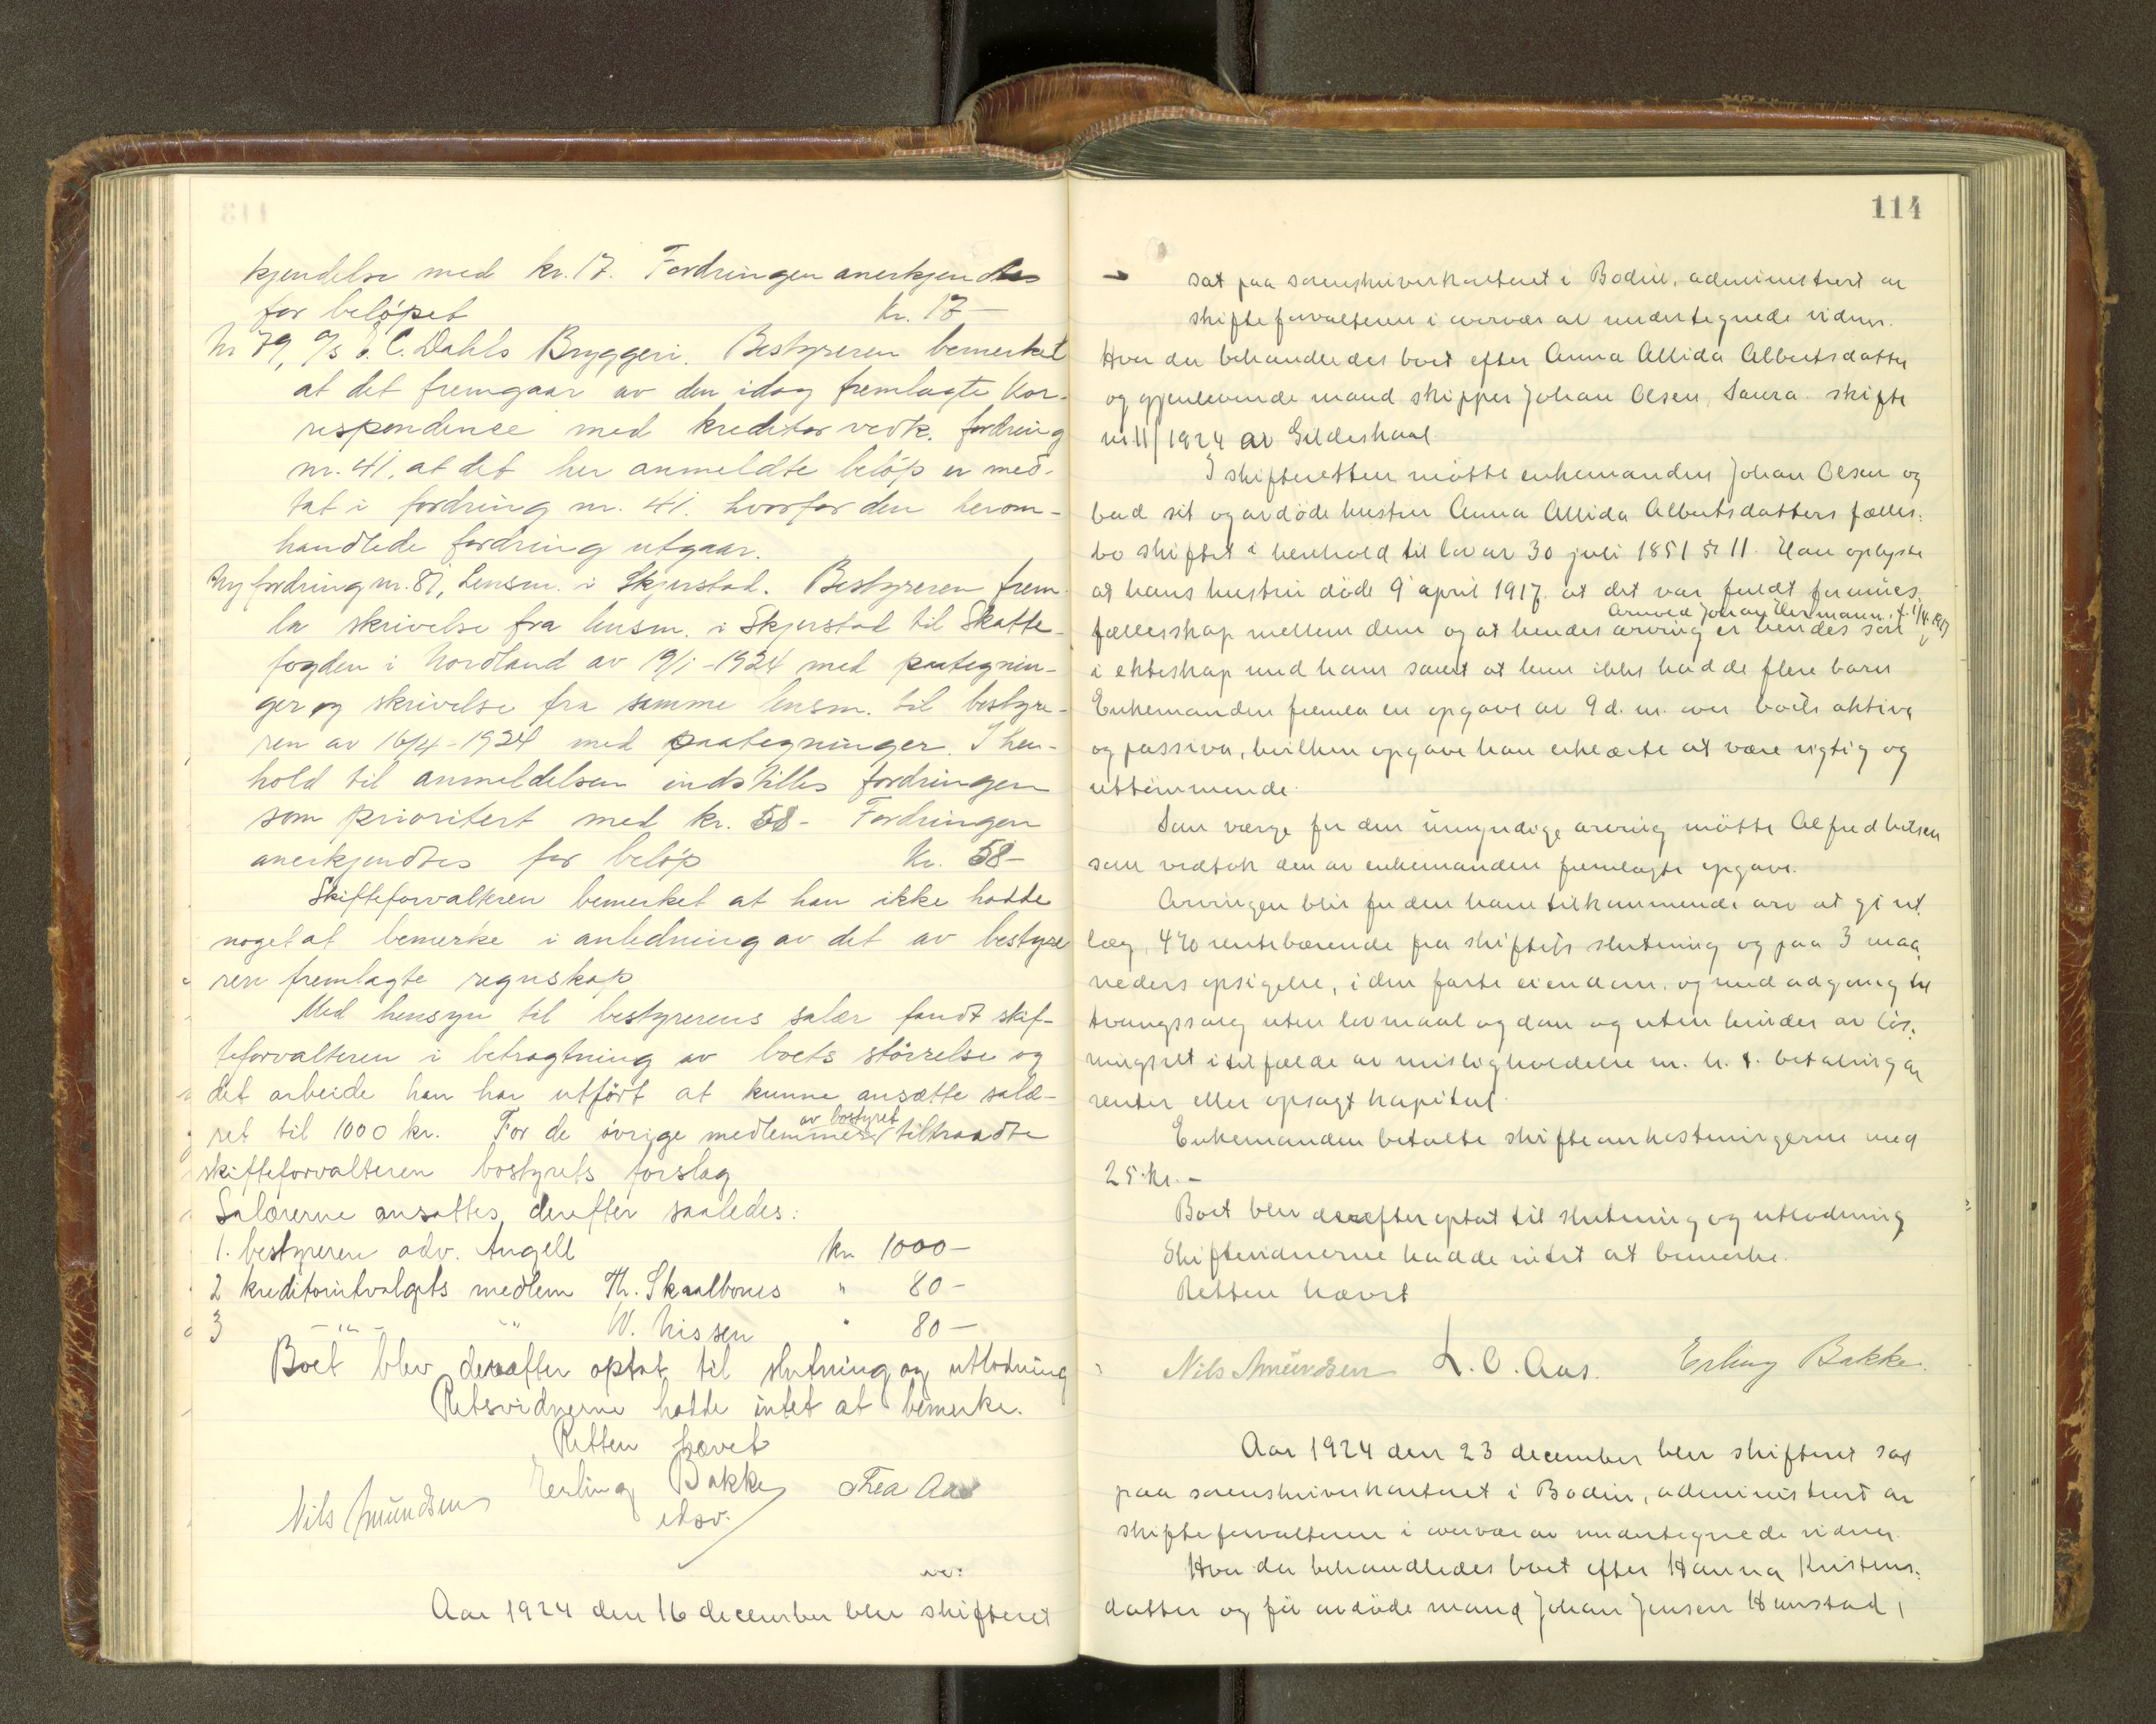 kjendelse med kr. 17. Fordringen anerkjendtes
for beløpet kr. 17 —
Nr 79, A/s E. C. Dahls Bryggeri. Bestyreren bemerket
at det fremgaar av den idag fremlagte kor-
respondence med kreditor vedk. fordring
nr. 41, at det her anmeldte beløp er med-
tat i fordring nr. 41. hvorfor den herom-
handlede fordring utgaar.
Ny fordring nr. 81, Lensm. i Skjerstad. Bestyreren frem-
la skrivelse fra lensm. i Skjerstad til Skatte-
fogden i Nordland av 19/1 - 1924 med paategnin-
ger og skrivelse fra samme lensm. til bestyre-
ren av 16/4 - 1924 med paategninger. I hen-
hold til anmeldelsen indstilles fordringen
som prioritert med kr. 58 - Fordringen
anerkjendtes for beløp kr. 58 -
Skifteforvalteren bemerket at han ikke hadde
noget at bemerke i anledning av det av bestyre
ren fremlagte regnskap
Med hensyn til bestyrerens salær fandt skif-
teforvalteren i betragtning av boets størrelse og
det arbeide han har utført at kunne ansætte salæ-
ret til 1000 kr. For de øvrige medlemmer av bostyret tiltraadte
skifteforvalteren bostyrets forslag
Salærerne ansattes derefter saaledes:
1. bestyreren adv. Angell kr. 1000 -
2 kreditorutvalgets medlem Th. Skaalbones " 80 -
3 - " - - " W. Nissen " 80 -
Boet blev derefter optat til slutning og utlodning
Retsvidnerne hadde intet at bemerke.
Retten hævet
Nils Amundsen Erling Bakke Thea Aas
Aar 1924 den 16 december blev skifteret
114
sat paa sorenskriverkontoret i Bodin, administrert av
skifteforvalteren i overvær av undertegnede vidner.
Hvor da behandledes boet efter Anna Allida Albertsdatter
og gjenlevende mand skipper Johan Olsen, Saura. skifte
nr 11/1924 av Gildeskaal
I skifteretten møtte enkemanden Johan Olsen og
bad sit og avdøde hustru Anna Allida Albertsdatters fælles-
bo skiftet i henhold til lov av 30 juli 1851 § 11. Han oplyste
at hans hustru døde 9 april 1917. at det var fuldt formues-
fællesskap mellem dem og at hendes arving er hendes søn Arnved Johan Hermann, f. 1/4 1917
i ekteskap med ham samt at hun ikke hadde flere barn
Enkemanden fremla en opgave av 9 d. m. over boets aktiva
og passiva, hvilken opgave han erklærte at være rigtig og
uttømmende.
Som værge for den umyndige arving møtte Alfred
som vedtok den av enkemanden fremlagte opgave.
Arvingen blir for den ham tilkommende arv at gi ut-
læg, 4 % rentebærende fra skiftets slutning og paa 3 maa-
neders opsigelse, i den faste eiendom. og med adgang til
tvangssalg uten lovmaal og dom og uten hinder av løs-
ningsret i tilfælde av misligholdelse m. h. t. betaling av
renter eller opsagt kapital.
Enkemanden betalte skifteomkostningerne med
25 kr. -
Boet blev derefter optat til slutning og utlodning
Skiftevidnerne hadde intet at bemerke.
Retten hævet
Nils Amundsen L. O. Aas. Erling Bakke.
Aar 1924 den 23 december blev skifteret sat
paa sorenskriverkontoret i Bodin, administrert av
skifteforvalteren i overvær av undertegnede vidner.
Hvor da behandledes boet efter Hanna Kristens-
datter og før avdøde mand Johan Jensen Hanstad,